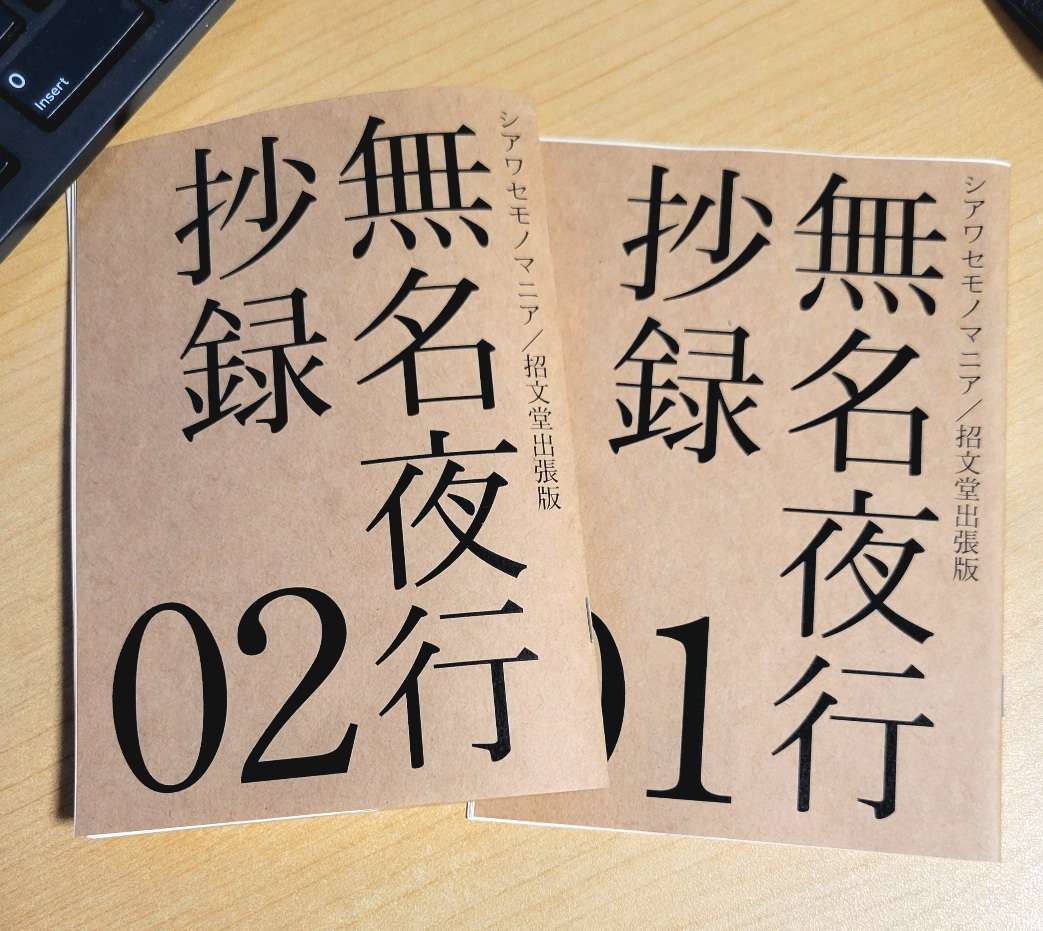 シアワセモノマニア／招文堂出張版
無名夜行
抄録
02
シアワセモノマニア／招文堂出張版
無名夜行
抄録
01
0
Insert